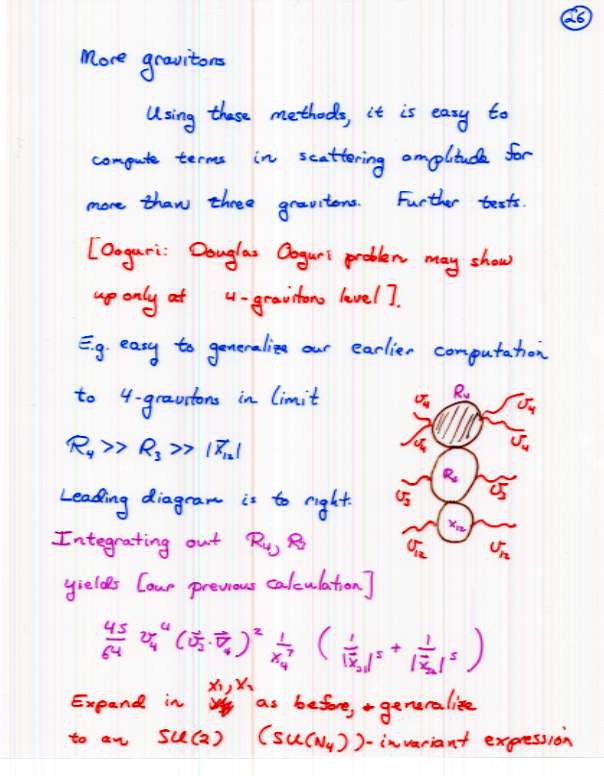 26
More gravitons
Using these methods, it is easy to
compute terms in scattering amplitude for
more than three gravitons. Further tests.
[Ooguri: Douglas Ooguri problem may show
up only at 4-graviton level].
E.g. easy to generalize our earlier computation
to 4-gravitons in limit
R₄ >> R₃ >> |X⃗₁₂|
Leading diagram is to right.
R₄
v₄ v₄
v₄ v₄
R₃
v₃ v₃
X₁₂
v₁₂ v₁₂
Integrating out R₄, R₃
yields [our previous calculation]
45/64 v₄⁴ (v⃗₃·∇⃗₄)² 1/X₄⁷ (1/|x⃗₃₁|⁵ + 1/|x⃗₃₂|⁵)
Expand in x₁, x₂ as before, + generalize
to an SU(2) (SU(N₄))-invariant expression